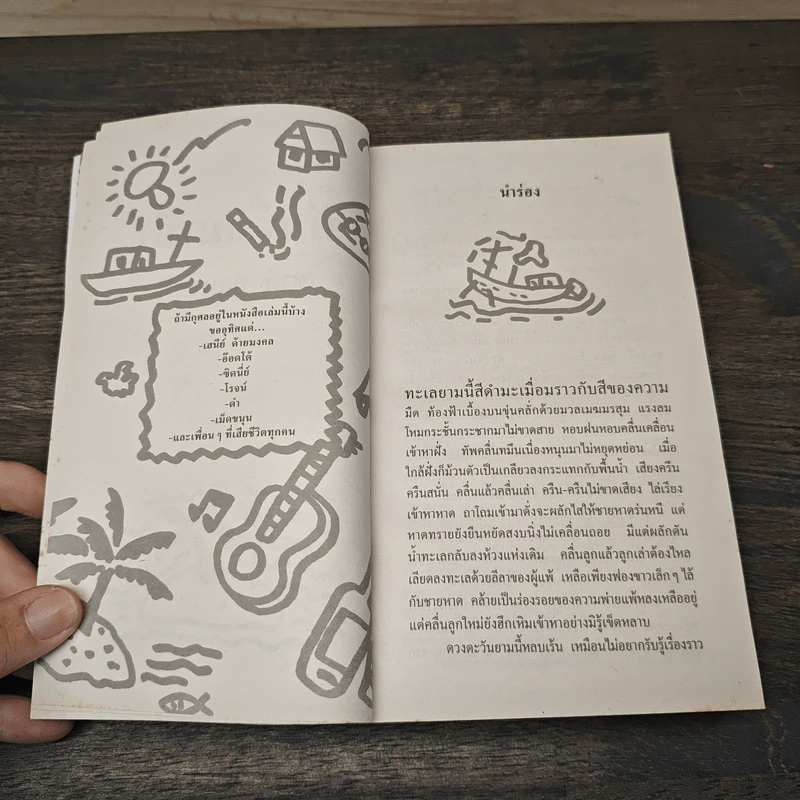 ถ้ามีกุศลอยู่ในหนังสือเล่มนี้บ้าง
ขออุทิศแด่...
-เสนีย์ ด้ายมงคล
-อ๊อดโต้
-ซิดนี่ย์
-โรจน์
-ดำ
-เม็ดขนุน
-และเพื่อนๆ ที่เสียชีวิตทุกคน
นำร่อง
ทะเลยามนี้สีดำมะเมื่อมราวกับสีของความ
มืด ท้องฟ้าเบื้องบนขุ่นคลั่กด้วยมวลเมฆมรสุม แรงลม
โหมกระชั้นกระชากมาไม่ขาดสาย หอบฝนหอบคลื่นเคลื่อน
เข้าหาฝั่ง ทัพคลื่นทมึนเนื่องหนุนมาไม่หยุดหย่อน เมื่อ
ใกล้ฝั่งก็ม้วนตัวเป็นเกลียวลงกระแทกกับพื้นน้ำ เสียงครืน
ครืนสนั่น คลื่นแล้วคลื่นเล่า ครืน-ครืนไม่ขาดเสียง ไล่เรียง
เข้าหาหาด ถาโถมเข้ามาดั่งจะผลักไสให้ชายหาดร่นหนี แต่
หาดทรายยังยืนหยัดสงบนิ่งไม่เคลื่อนถอย มีแต่ผลักดัน
น้ำทะเลกลับลงห้วงแห่งเดิม คลื่นลูกแล้วลูกเล่าต้องไหล
เลียดลงทะเลด้วยลีลาของผู้แพ้ เหลือเพียงฟองขาวเล็กๆ ไล้
กับชายหาด คล้ายเป็นร่องรอยของความพ่ายแพ้หลงเหลืออยู่
แต่คลื่นลูกใหม่ยังฮึกเหิมเข้าหาอย่างมิรู้เข็ดหลาบ
ดวงตะวันยามนี้หลบเร้น เหมือนไม่อยากรับรู้เรื่องราว